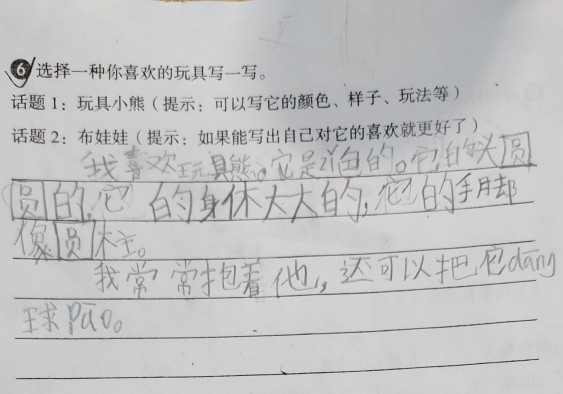 6 选择一种你喜欢的玩具写一写。
话题1：玩具小熊（提示：可以写它的颜色、样子、玩法等）
话题2：布娃娃（提示：如果能写出自己对它的喜欢就更好了）
我喜欢玩具熊。它是 色的。它的头圆
圆的，它 的身休大大的，它的手脚
像圆柱。
我常常抱着他，还可以把它dāng
球pāo。